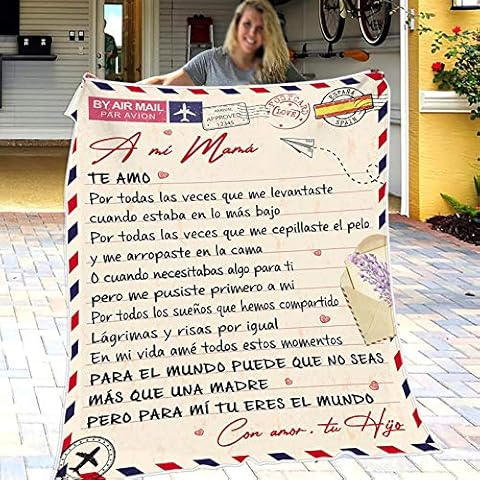 BY AIR MAIL
PAR AVION
ARRIVAL
APPROVED
12345
POSTCARD
LOVE
ESPAÑA
SPAIN
A mi Mamá
TE AMO
Por todas las veces que me levantaste
cuando estaba en lo más bajo
Por todas las veces que me cepillaste el pelo
y me arropaste en la cama
O cuando necesitabas algo para ti
pero me pusiste primero a mi
Por todos los sueños que hemos compartido
Lágrimas y risas por igual
En mi vida amé todos estos momentos
PARA EL MUNDO PUEDE QUE NO SEAS
MÁS QUE UNA MADRE
PERO PARA MÍ TU ERES EL MUNDO
Con amor, tu Hijo